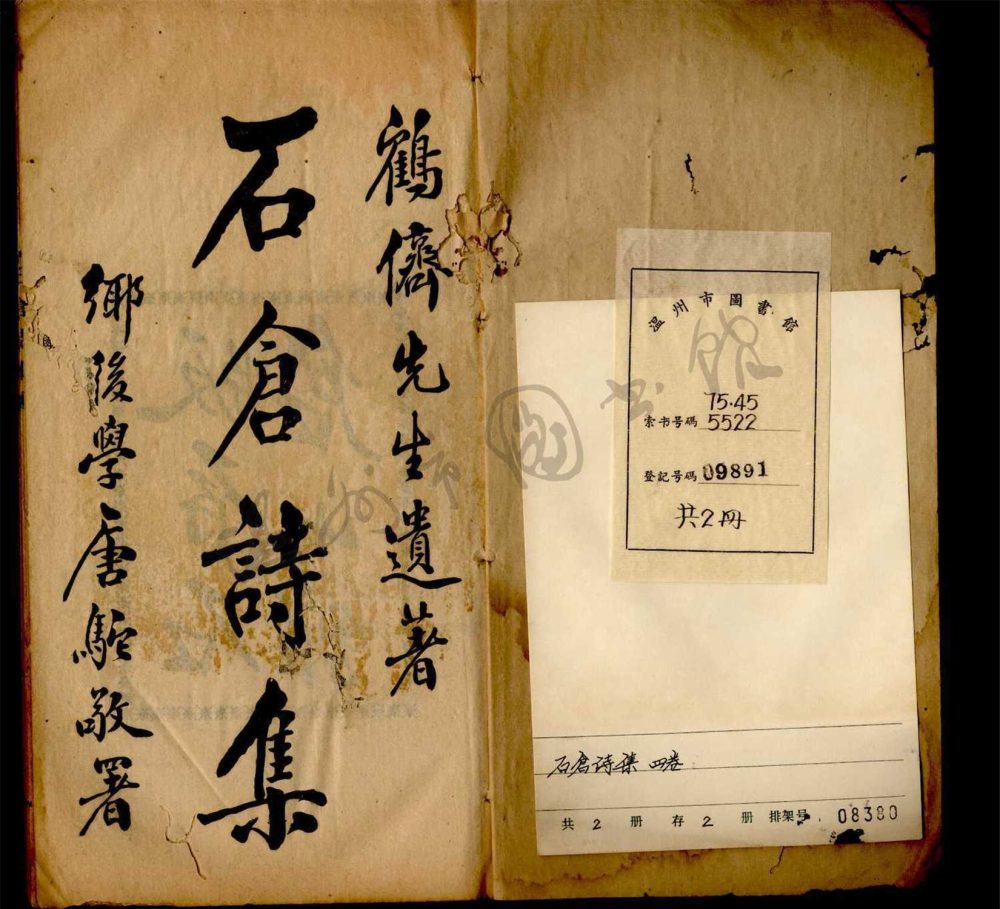 鶴儕先生遺著
石倉詩集
鄉後學唐駝敬署
温州市圖書館
索书号碼 75·45
5522
登記号碼 09891
共2冊
石倉诗集 四卷
共 2 册 存 2 册 排架号 08380